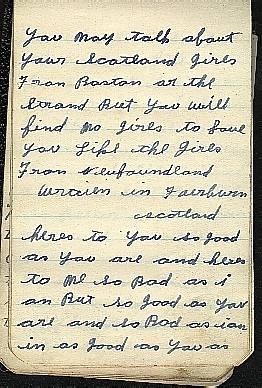 You May talk about
Your Scotland Girls
Fron Boston or the
Strand But You will
find No Girls to Love
You Like the Girls
Fron Newfoundland
Written in Fairburn
Scotland
heres to You so good
as You are and heres
to Me so Bad as i
am But so good as You
are and so Bad as i am
im as good as You as